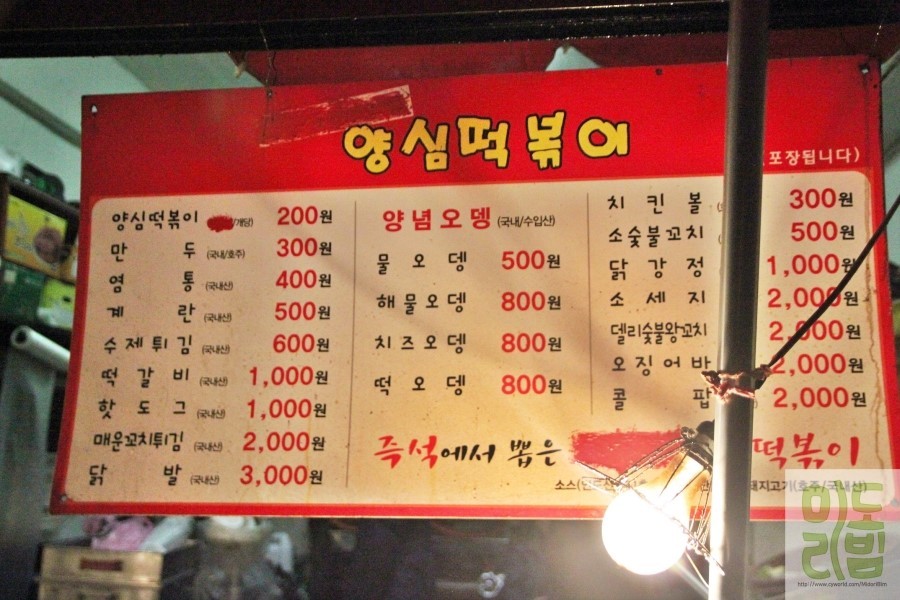 양심떡볶이
포장됩니다)
양심떡볶이 /개당) 200원
만두 (국내/호주) 300원
염통 (국내산) 400원
계란 (국내산) 500원
수제튀김 (국내산) 600원
떡갈비 (국내산) 1,000원
핫도그 (국내산) 1,000원
매운꼬치튀김 (국내산) 2,000원
닭발 (국내산) 3,000원
양념오뎅 (국내/수입산)
물오뎅 500원
해물오뎅 800원
치즈오뎅 800원
떡오뎅 800원
치킨볼 300원
소숯불꼬치 500원
닭강정 1,000원
소세지 2,000원
델리숯불왕꼬치 2,000원
오징어바 2,000원
콜팝 2,000원
즉석에서 뽑은 떡볶이
소스( 돼지고기(호주/국내산)
미도리빔
http://www.cyworld.com/MidoriBim